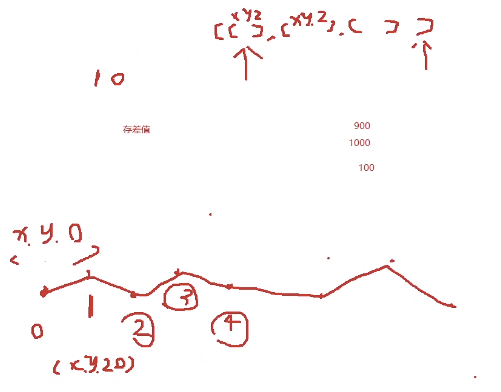 [[xyz],[xyz],[ ]]
10
存差值
900
1000
100
x.y.0
0
1
2
3
4
(x.y.20)